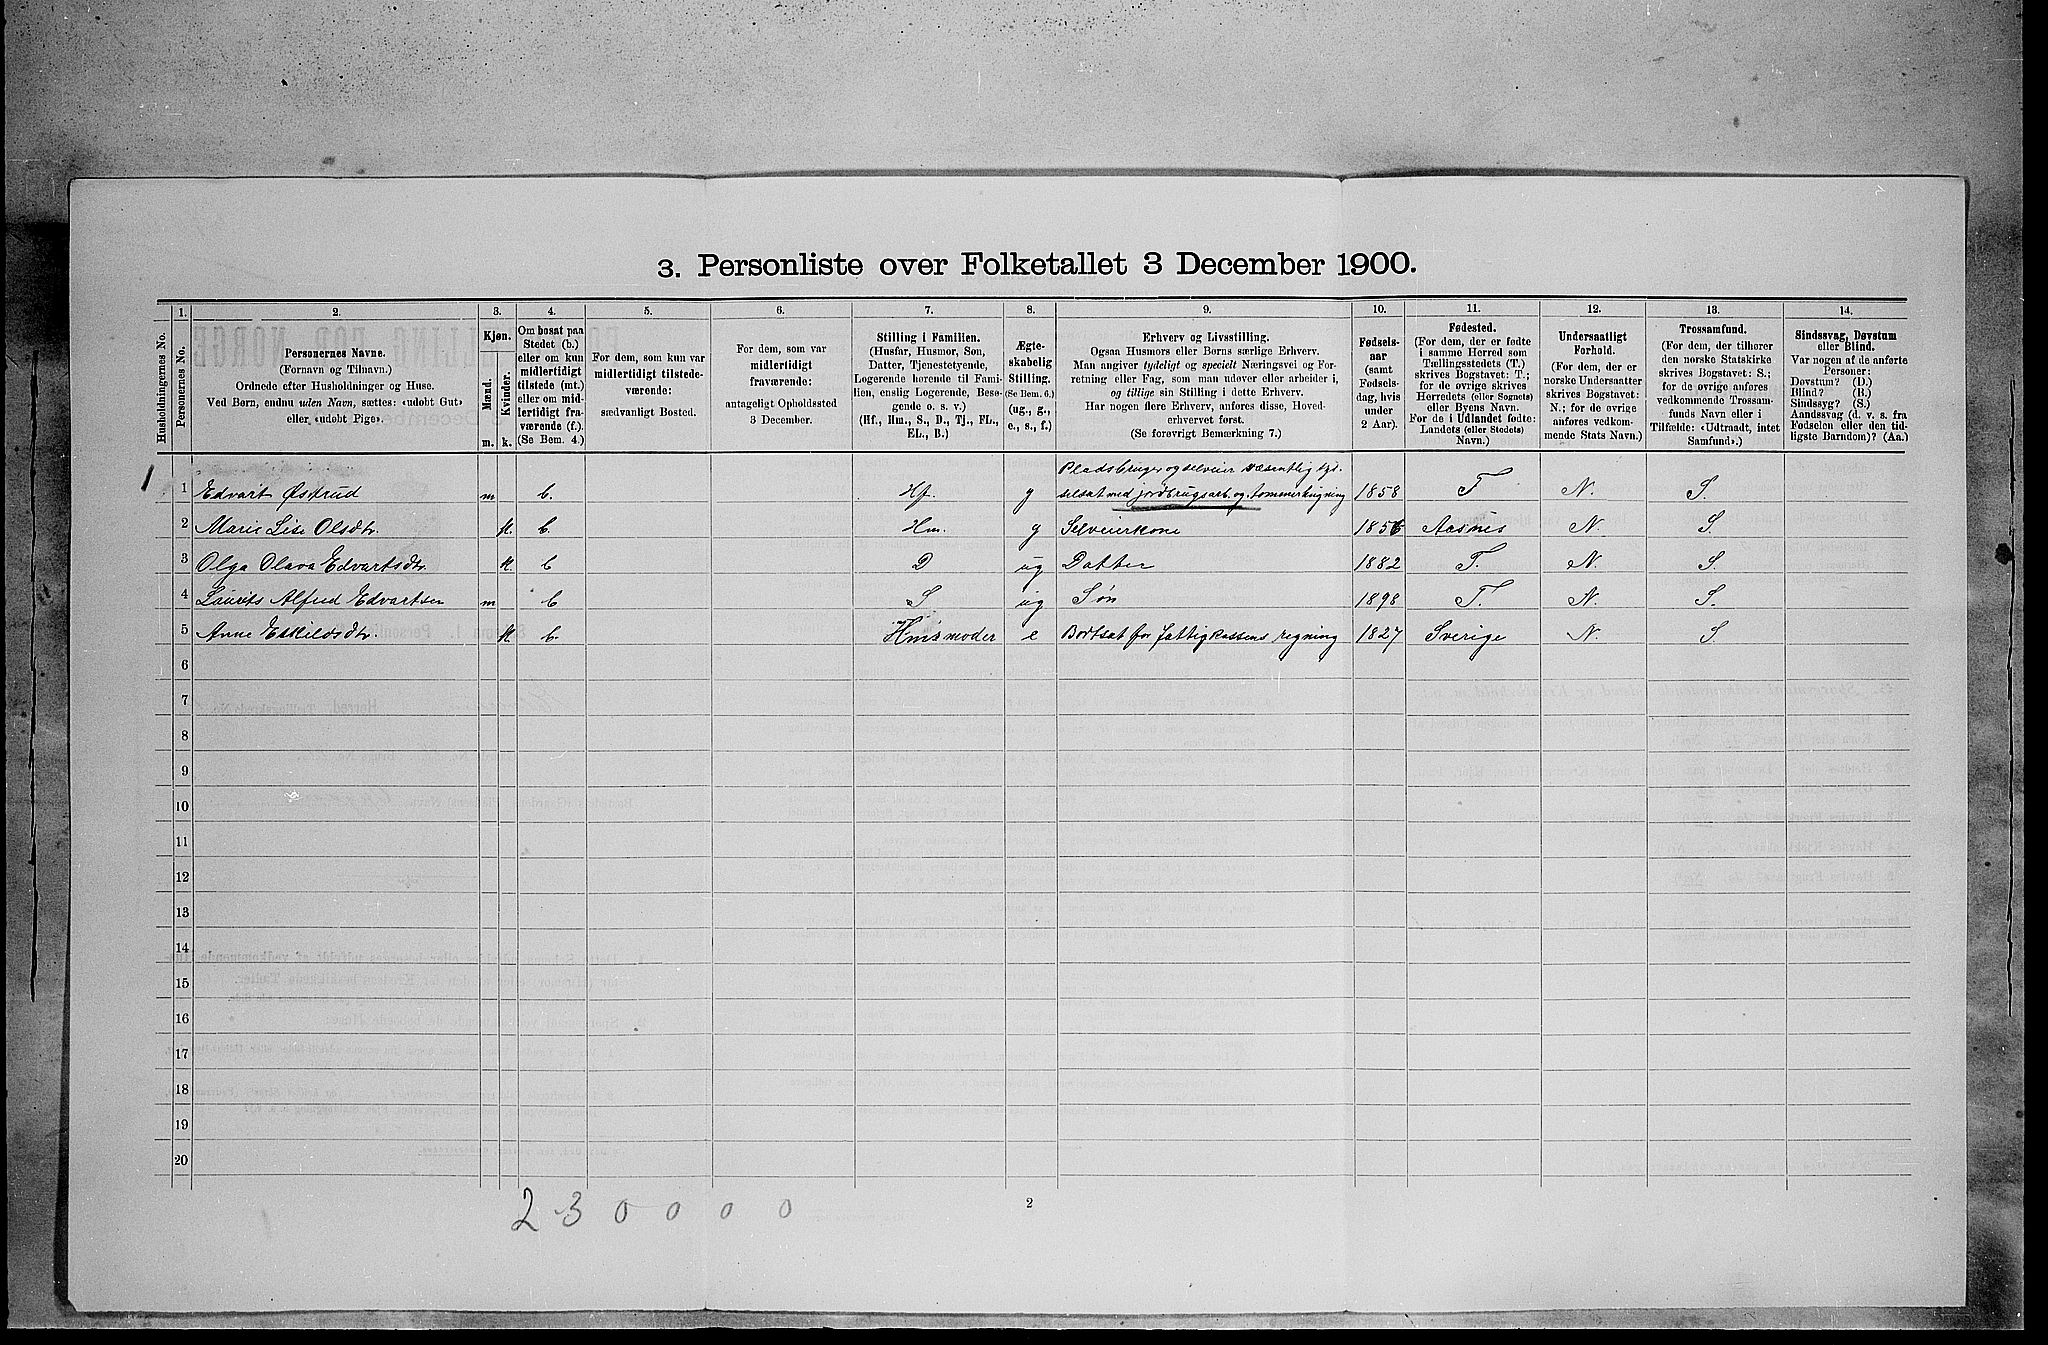 3. Personliste over Folketallet 3 December 1900.
Husholdningernes No.
1.
Personernes No.
2.
Personernes Navne.
(Fornavn og Tilnavn.)
Ordnede efter Husholdninger og Huse.
Ved Børn, endnu uden Navn, sættes: «udøbt Gut»
eller «udøbt Pige».
3.
Kjøn.
Mænd.
Kvinder.
m.
k.
4.
Om bosat paa
Stedet (b.)
eller om kun
midlertidigt
tilstede (mt.)
eller om mid-
lertidigt fra-
værende (f.).
(Se Bem. 4.)
5.
For dem, som kun var
midlertidigt tilstede-
værende:
sædvanligt Bosted.
6.
For dem, som var
midlertidigt
fraværende:
antageligt Opholdssted
3 December.
7.
Stilling i Familien.
(Husfar, Husmor, Søn,
Datter, Tjenestetyende,
Logerende hørende til Fami-
lien, enslig Logerende, Besø-
gende o. s. v.)
(Hf., Hm., S., D., Tj., FL.,
EL., B.)
8.
Ægte-
skabelig
Stilling.
(Se Bem. 6.)
(ug., g.,
e., s., f.)
9.
Erhverv og Livsstilling.
Ogsaa Husmors eller Børns særlige Erhverv.
Man angiver tydeligt og specielt Næringsvei og For-
retning eller Fag, som man udøver eller arbeider i,
og tillige sin Stilling i dette Erhverv.
Har nogen flere Erhverv, anføres disse, Hoved-
erhvervet først.
(Se forøvrigt Bemærkning 7.)
10.
Fødsels-
aar
(samt
Fødsels-
dag, hvis
under
2 Aar).
11.
Fødested.
(For dem, der er fødte
i samme Herred som
Tællingsstedets (T.)
skrives Bogstavet: T.;
for de øvrige skrives
Herredets (eller Sognets)
eller Byens Navn.
For de i Udlandet fødte:
Landets (eller Stedets)
Navn.)
12.
Undersaatligt
Forhold.
(For dem, der er
norske Undersaatter
skrives Bogstavet:
N.; for de øvrige
anføres vedkom-
mende Stats Navn.)
13.
Trossamfund.
(For dem, der tilhører
den norske Statskirke
skrives Bogstavet: S.;
for de øvrige anføres
vedkommende Trossam-
funds Navn eller i
Tilfælde: «Udtraadt, intet
Samfund».)
14.
Sindssvag, Døvstum
eller Blind.
Var nogen af de anførte
Personer:
Døvstum? (D.)
Blind? (B.)
Sindssyg? (S.)
Aandssvag (d. v. s. fra
Fødselen eller den tid-
ligste Barndom)? (Aa.)
1 1 Edvart Østrud m b. Hf. g Pladsbruger og selveier væsentlig sys-
selsat med jordbrugsarb. og tømmerhugning 1858 T N. S.
2 Marie Lise Olsdtr. k. b. Hm. g Selveierkone 1856 Aasnes N. S.
3 Olga Olava Edvartsdtr. k. b D ug Datter 1882 T. N. S.
4 Laurits Alfred Edvartsen m b S ug Søn 1898 T. N. S.
5 Anne Eskildsdtr. k. b. Husmoder e Bortsat for fattigkassens regning 1827 Sverige N. S.
6
7
8
9
10
11
12
13
14
15
16
17
18
19
20
2-3 0 0 0 0
2